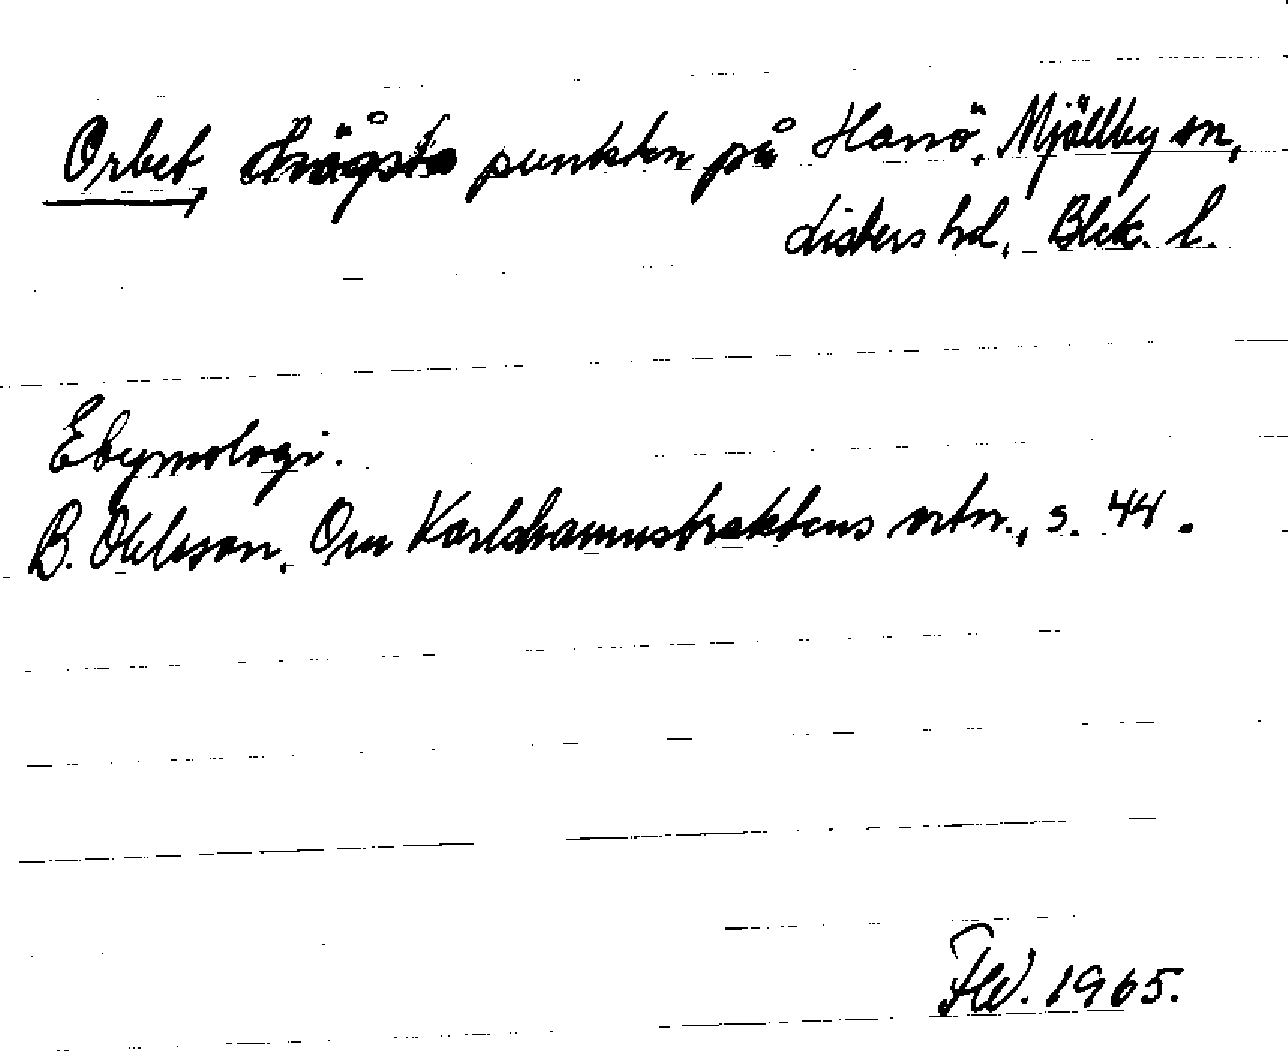 Orbet, högsta punkten på Hanö, Mjällby sn,
Listers hd, Blek. l.
Etymologi.
B. Ohlsson, Om Karlshamnstraktens ortn., s. 44.
1965.